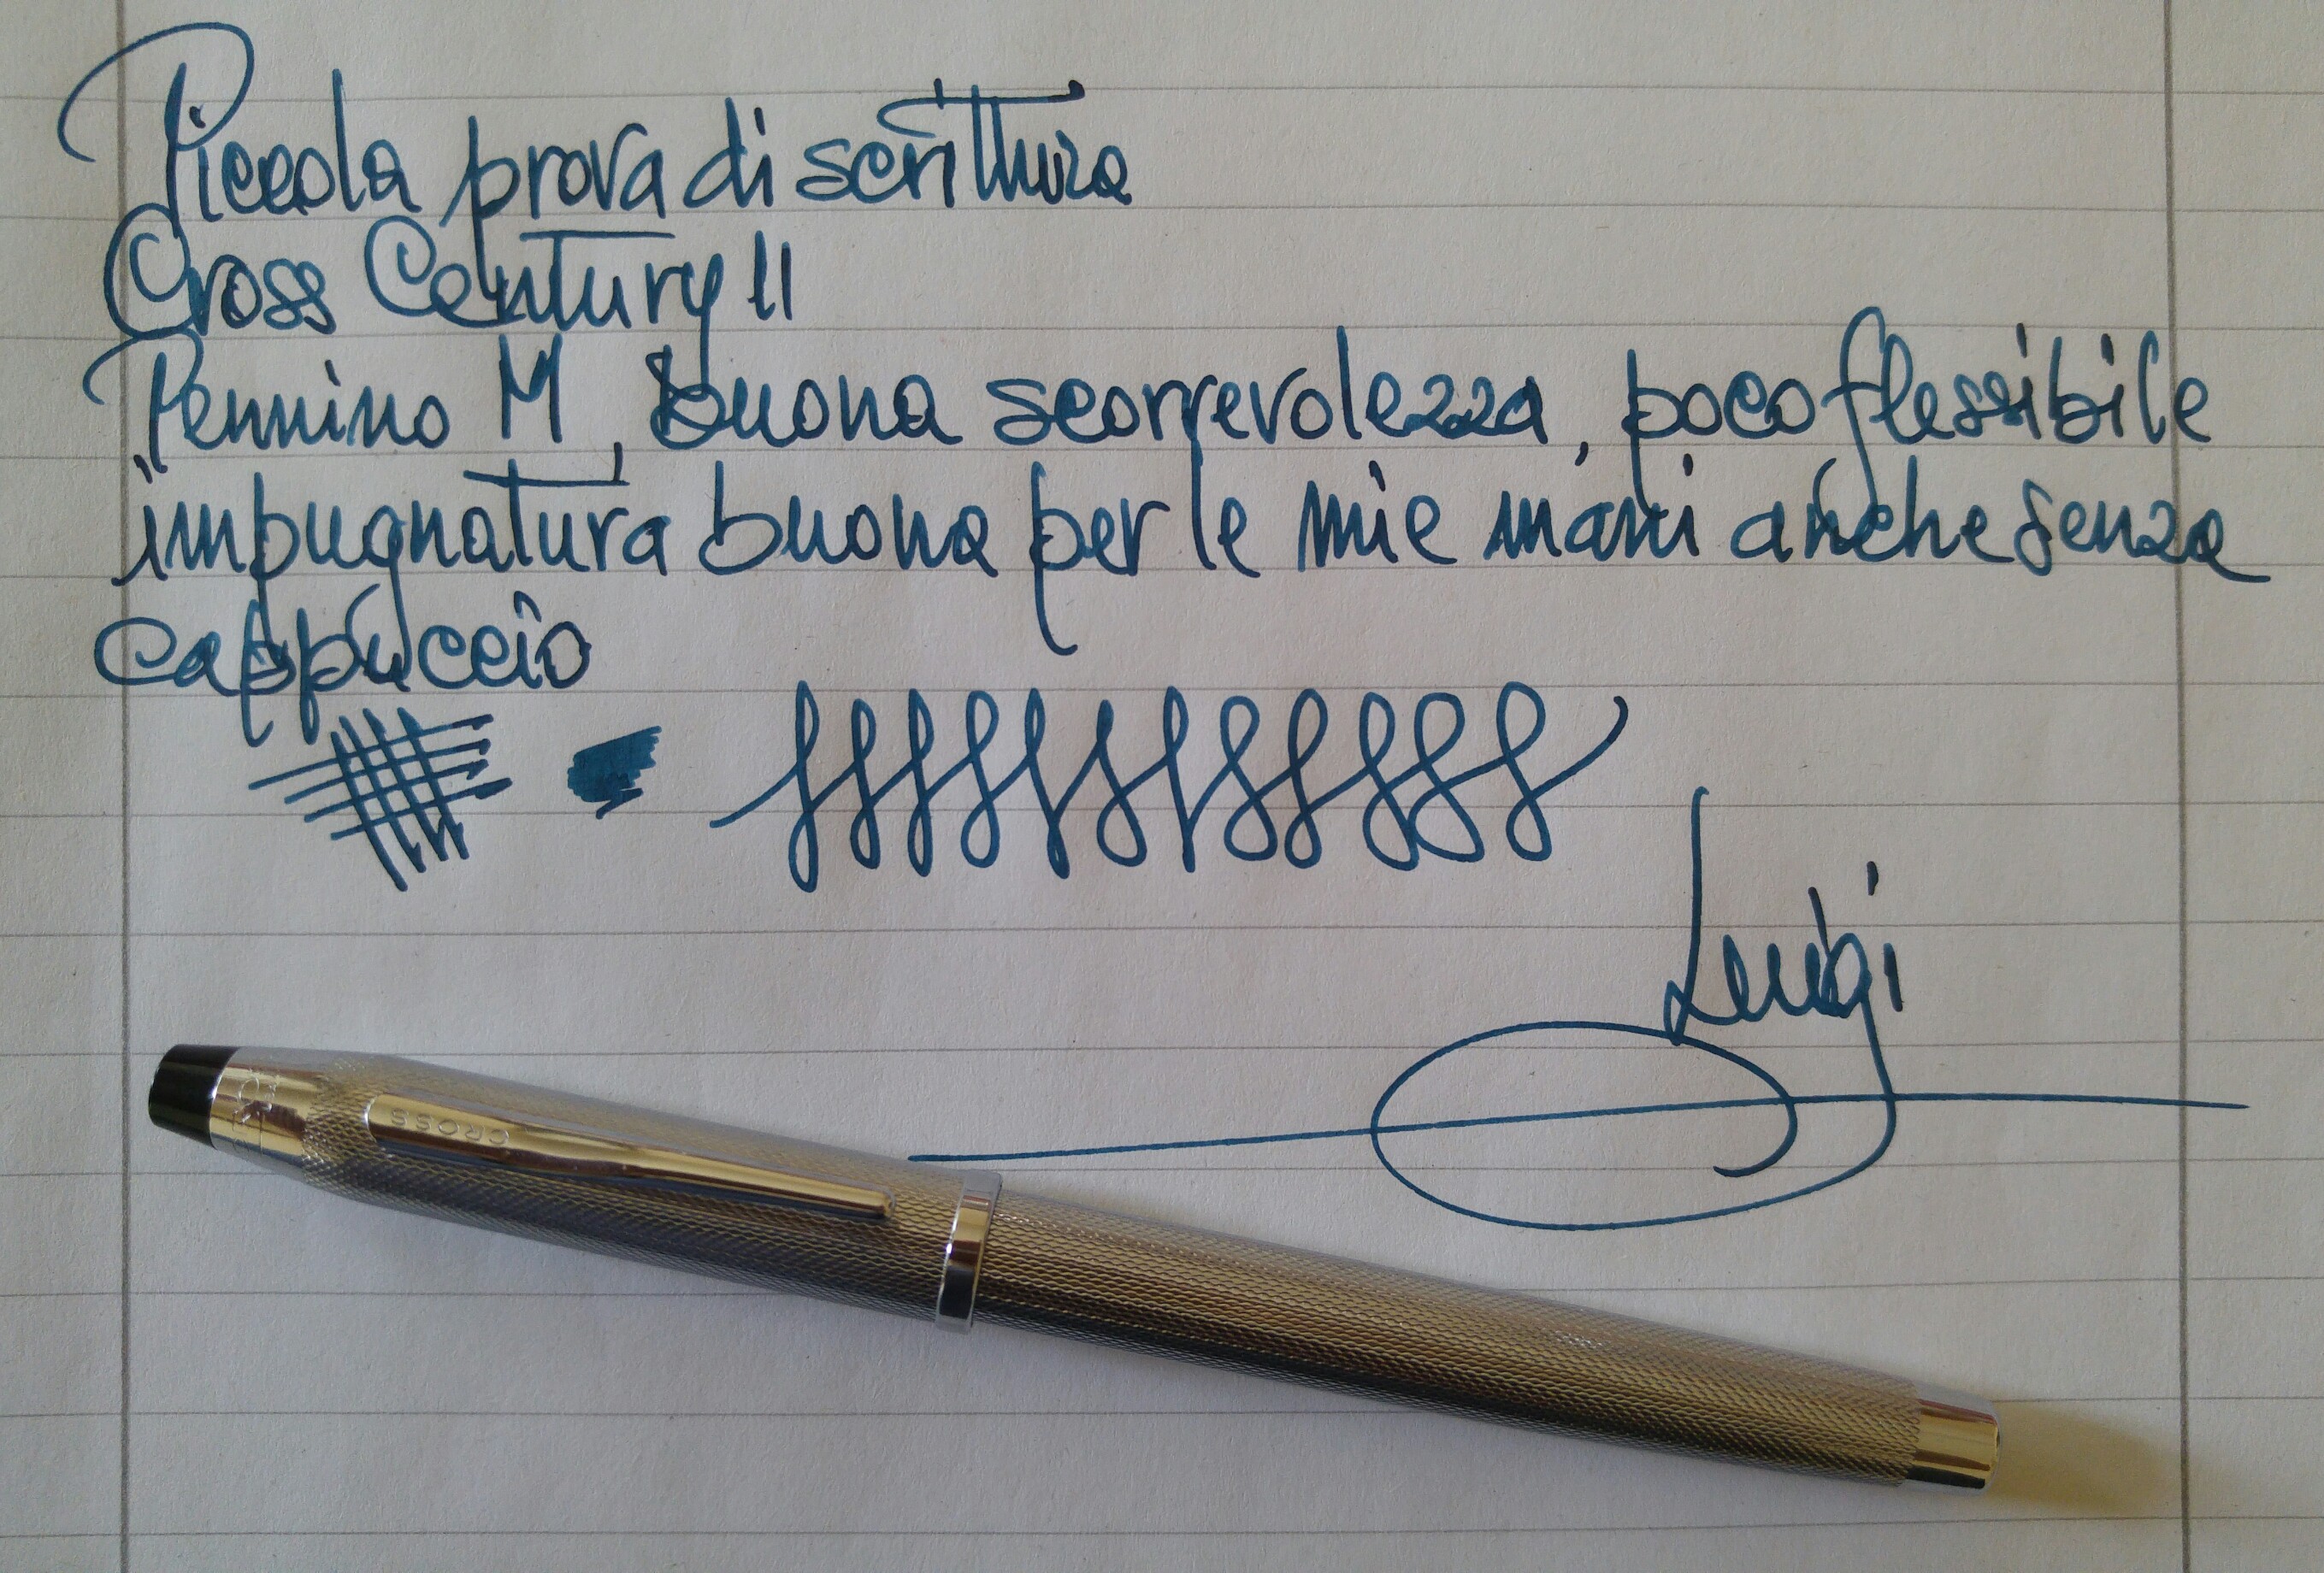 Piccola prova di scrittura
Cross Century II
Pennino M, buona scorrevolezza, poco flessibile
impugnatura buona per le mie mani anche senza
cappuccio
Luigi
CROSS